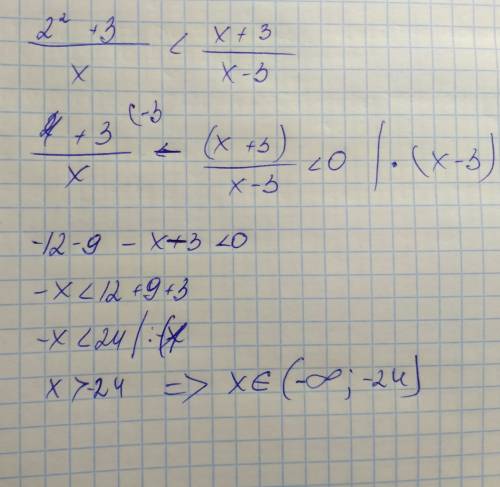 2² + 3 / x < x + 3 / x - 3
4 + 3 (-3 / x - (x + 3) / x - 3 < 0 | · (x - 3)
-12 - 9 - x + 3 < 0
-x < 12 + 9 + 3
-x < 24 | : (
x > -24 => x ∈ (-∞; -24)